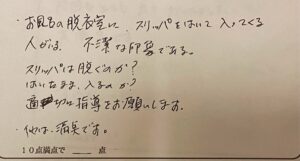 ・お風呂の脱衣室に、スリッパをはいて入ってくる
人がいる、不潔な印象である。
スリッパは脱ぐのか？
はいたまま、入るのか？
適切な指導をお願いします。
・他は、満点です。
10点満点で ＿＿＿ 点